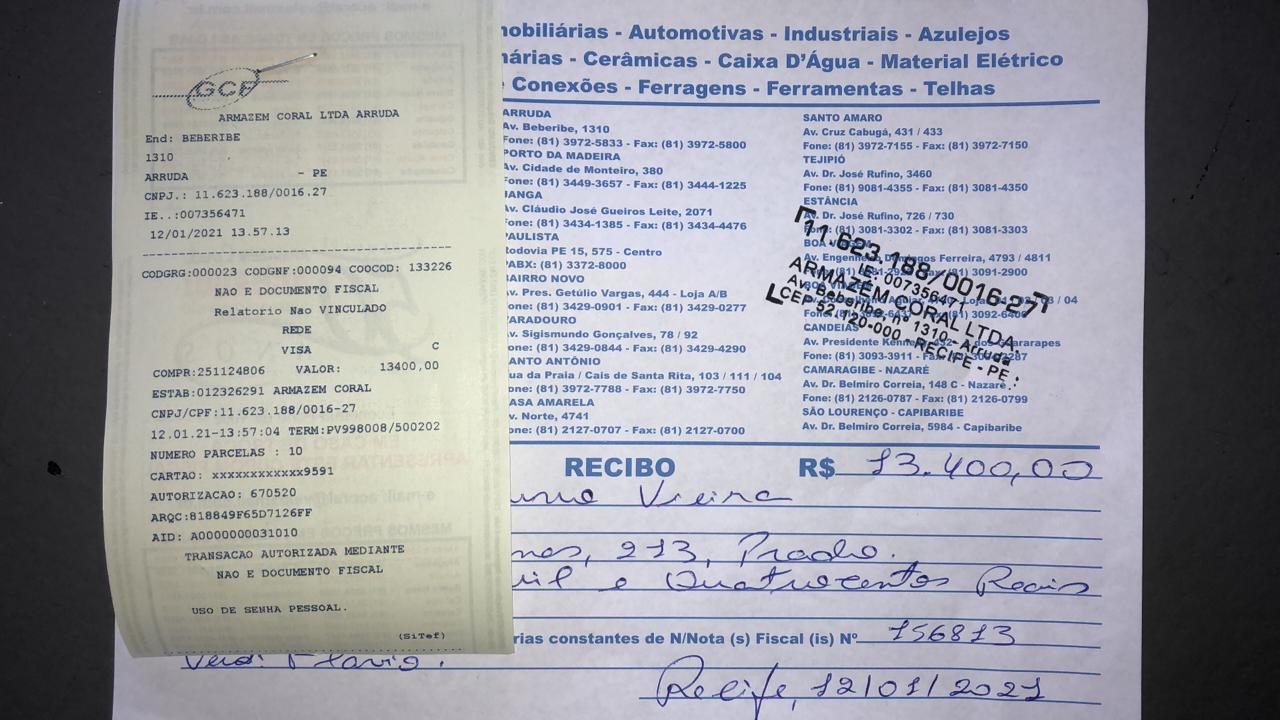 GCF
ARMAZEM CORAL LTDA ARRUDA
End: BEBERIBE
1310
ARRUDA - PE
CNPJ.: 11.623.188/0016.27
IE..:007356471
12/01/2021 13.57.13
CODGRG:000023 CODGNF:000094 COOCOD: 133226
NAO E DOCUMENTO FISCAL
Relatorio Nao VINCULADO
REDE
VISA C
COMPR:251124806 VALOR: 13400,00
ESTAB:012326291 ARMAZEM CORAL
CNPJ/CPF:11.623.188/0016-27
12.01.21-13:57:04 TERM:PV998008/500202
NUMERO PARCELAS : 10
CARTAO: xxxxxxxxxxxx9591
AUTORIZACAO: 670520
ARQC:818849F65D7126FF
AID: A0000000031010
TRANSACAO AUTORIZADA MEDIANTE
NAO E DOCUMENTO FISCAL
USO DE SENHA PESSOAL.
(SiTef)
nobiliárias - Automotivas - Industriais - Azulejos
nárias - Cerâmicas - Caixa D'Água - Material Elétrico
e Conexões - Ferragens - Ferramentas - Telhas
ARRUDA
Av. Beberibe, 1310
Fone: (81) 3972-5833 - Fax: (81) 3972-5800
PORTO DA MADEIRA
Av. Cidade de Monteiro, 380
Fone: (81) 3449-3657 - Fax: (81) 3444-1225
JANGA
Av. Cláudio José Gueiros Leite, 2071
Fone: (81) 3434-1385 - Fax: (81) 3434-4476
PAULISTA
Rodovia PE 15, 575 - Centro
PABX: (81) 3372-8000
BAIRRO NOVO
Av. Pres. Getúlio Vargas, 444 - Loja A/B
Fone: (81) 3429-0901 - Fax: (81) 3429-0277
VARADOURO
Av. Sigismundo Gonçalves, 78 / 92
Fone: (81) 3429-0844 - Fax: (81) 3429-4290
SANTO ANTÔNIO
ua da Praia / Cais de Santa Rita, 103 / 111 / 104
one: (81) 3972-7788 - Fax: (81) 3972-7750
ASA AMARELA
v. Norte, 4741
one: (81) 2127-0707 - Fax: (81) 2127-0700
SANTO AMARO
Av. Cruz Cabugá, 431 / 433
Fone: (81) 3972-7155 - Fax: (81) 3972-7150
TEJIPIÓ
Av. Dr. José Rufino, 3460
Fone: (81) 9081-4355 - Fax: (81) 3081-4350
ESTÂNCIA
Av. Dr. José Rufino, 726 / 730
Fone: (81) 3081-3302 - Fax: (81) 3081-3303
BOA
Av. Engenheiro Domingos Ferreira, 4793 / 4811
Fax: (81) 3091-2900
Loja 03 / 04
CANDEIAS
Av. Presidente Kennedy
Fone: (81) 3093-3911 - Fax:
CAMARAGIBE - NAZARÉ
Av. Dr. Belmiro Correia, 148 C - Nazaré
Fone: (81) 2126-0787 - Fax: (81) 2126-0799
SÃO LOURENÇO - CAPIBARIBE
Av. Dr. Belmiro Correia, 5984 - Capibaribe
11.623.188/0016-27
IE: 007356471
ARMAZEM CORAL LTDA.
Av. Beberibe, nº 1310 - Arruda
CEP 52.120-000 - RECIFE - PE
RECIBO R$ 13.400,00
Vieira
213, Prado.
mil e Quatrocentos Reais
rias constantes de N/Nota (s) Fiscal (is) Nº 156813
Flavio.
Recife, 12/01/2021